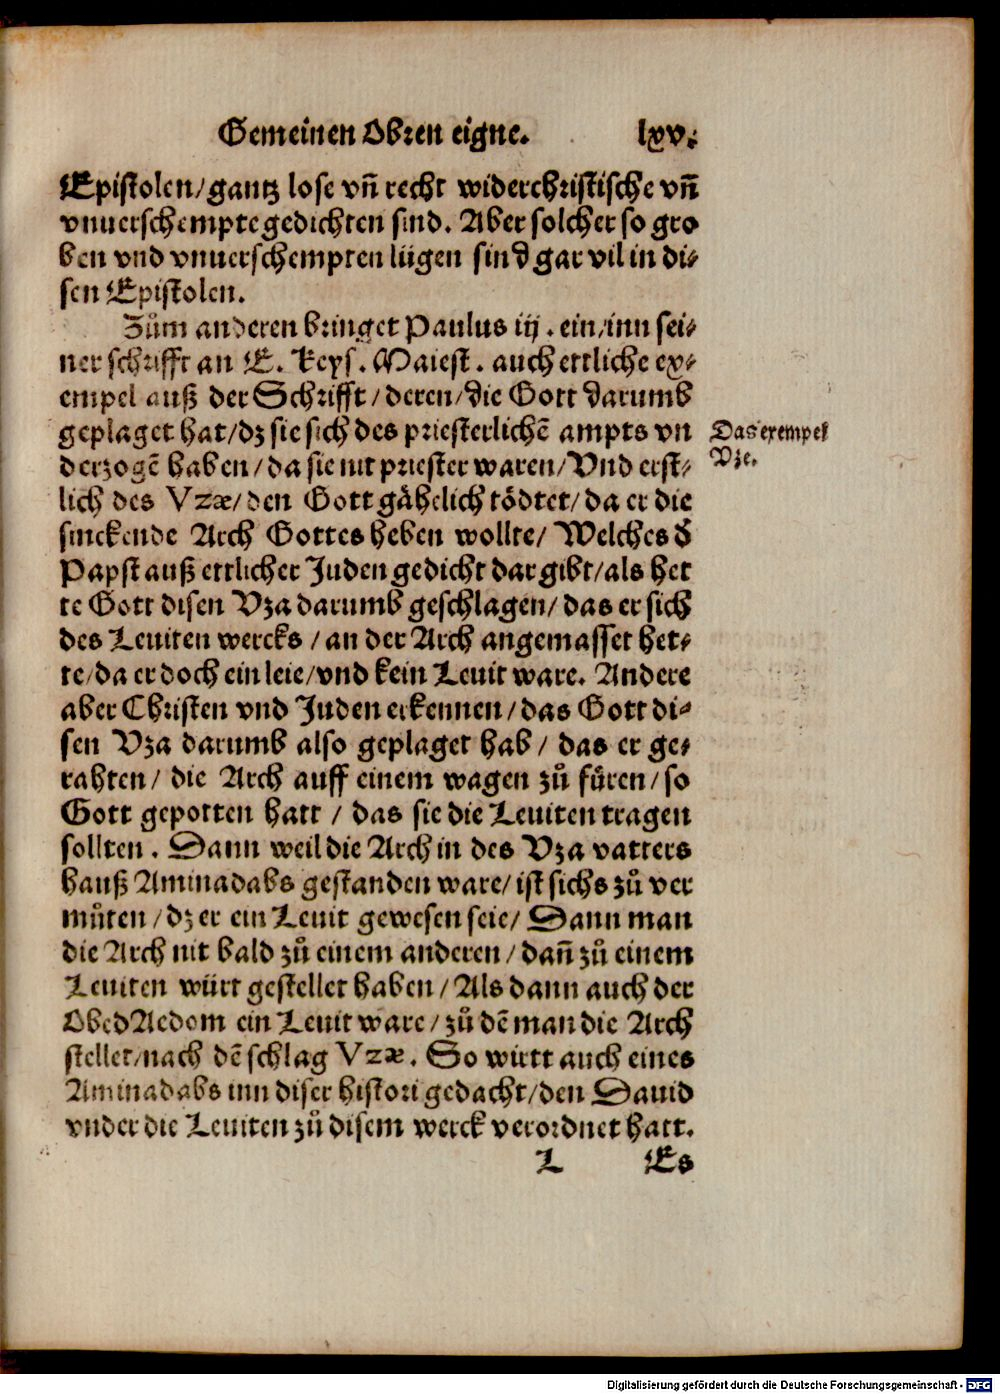 Gemeinen Obren eigne. lxv.
Epistolen/gantz lose vñ recht widerchristische vñ
vnuerschempte gedichten sind. Aber solcher so gro
ben vnd vnuerschempten lügen sind gar vil in di⸗
sen Epistolen.
Zům anderen bringet Paulus iij. ein/inn sei⸗
ner schrifft an E. Keys. Maiest. auch ettliche ex⸗
empel auß der Schrifft/deren/die Gott darumb
geplaget hat/dz sie sich des priesterlichē ampts vn
derzogē haben/da sie nit priester waren/Vnd erst⸗
lich des Vzæ/den Gott gåhelich tödtet/da er die
sinckende Arch Gottes heben wollte/Welches d̕
Papst auß ettlicher Juden gedicht dargibt/als het
te Gott disen Vza darumb geschlagen/das er sich
des Leuiten wercks/an der Arch angemasset het⸗
te/da er doch ein leie/vnd kein Leuit ware. Andere
aber Christen vnd Juden erkennen/das Gott di⸗
sen Vza darumb also geplaget hab/das er ge⸗
rahten/die Arch auff einem wagen zů füren/so
Gott gepotten hatt/das sie die Leuiten tragen
sollten. Dann weil die Arch in des Vza vatters
hauß Aminadabs gestanden ware/ist sichs zů ver
můten/dz er ein Leuit gewesen seie/Dann man
die Arch nit bald zů einem anderen/dañ zů einem
Leuiten würt gestellet haben/Als dann auch der
ObedAedom ein Leuit ware/zů dē man die Arch
stellet/nach dē schlag Vzæ. So wirtt auch eines
Aminadabs inn diser histori gedacht/den Dauid
vnder die Leuiten zů disem werck verordnet hatt.
L Es
Das exempel
Vze.
Digitalisierung gefördert durch die Deutsche Forschungsgemeinschaft - DFG